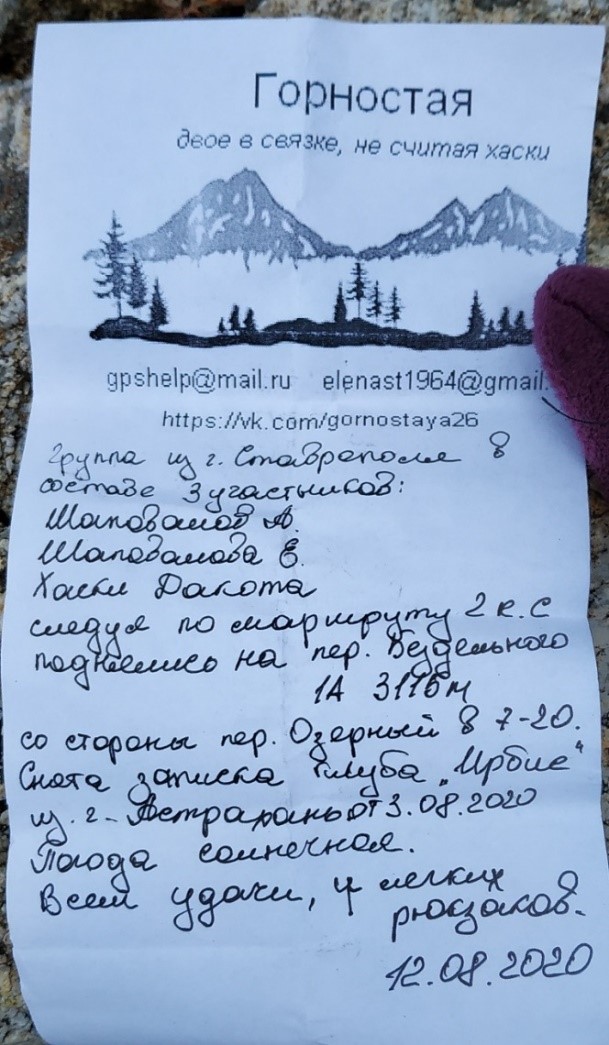 Горностая
двое в связке, не считая хаски
gpshelp@mail.ru elenast1964@gmail.
https://vk.com/gornostaya26
Группа из г. Ставрополя в
составе 3 участников:
Шаповалов А.
Шаповалова Е.
Хаски Дакота
следуя по маршруту 2 к.с
поднялись на пер. Бездельного
1А 3116м
со стороны пер. Озерный в 7-20.
Снята записка клуба „Ирбис“
из г. Астрахань от 3.08.2020
Погода солнечная.
Всем удачи, и легких
рюкзаков.
12.08.2020